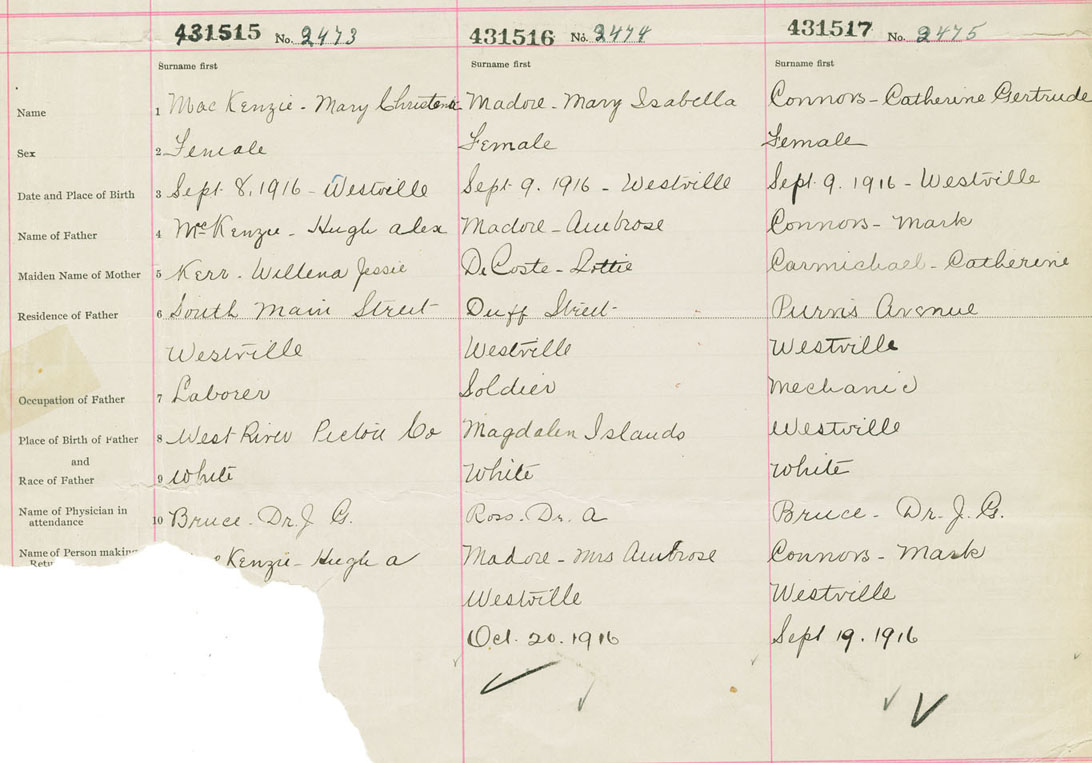 431515 No. 2473 431516 No. 2474 431517 No. 2475
Surname first Surname first Surname first
Name 1 MacKenzie - Mary Christena Madore - Mary Isabella Connors - Catherine Gertrude
Sex 2 Female Female Female
Date and Place of Birth 3 Sept. 8. 1916 - Westville Sept. 9. 1916 - Westville Sept. 9. 1916 - Westville
Name of Father 4 McKenzie - Hugh Alex Madore - Ambrose Connors - Mark
Maiden Name of Mother 5 Kerr - Willena Jessie DeCoste - Lottie Carmichael - Catherine
Residence of Father 6 South Main Street Duff Street Purvis Avenue
Westville Westville Westville
Occupation of Father 7 Laborer Soldier Mechanic
Place of Birth of Father 8 West River Pictou Co Magdalen Islands Westville
and
Race of Father 9 White White White
Name of Physician in
attendance 10 Bruce - Dr. J. G. Ross - Dr. A Bruce - Dr. J. G.
Name of Person making Kenzie - Hugh A Madore - Mrs Ambrose Connors - Mark
Retu
Westville Westville
Oct. 20. 1916 Sept 19. 1916